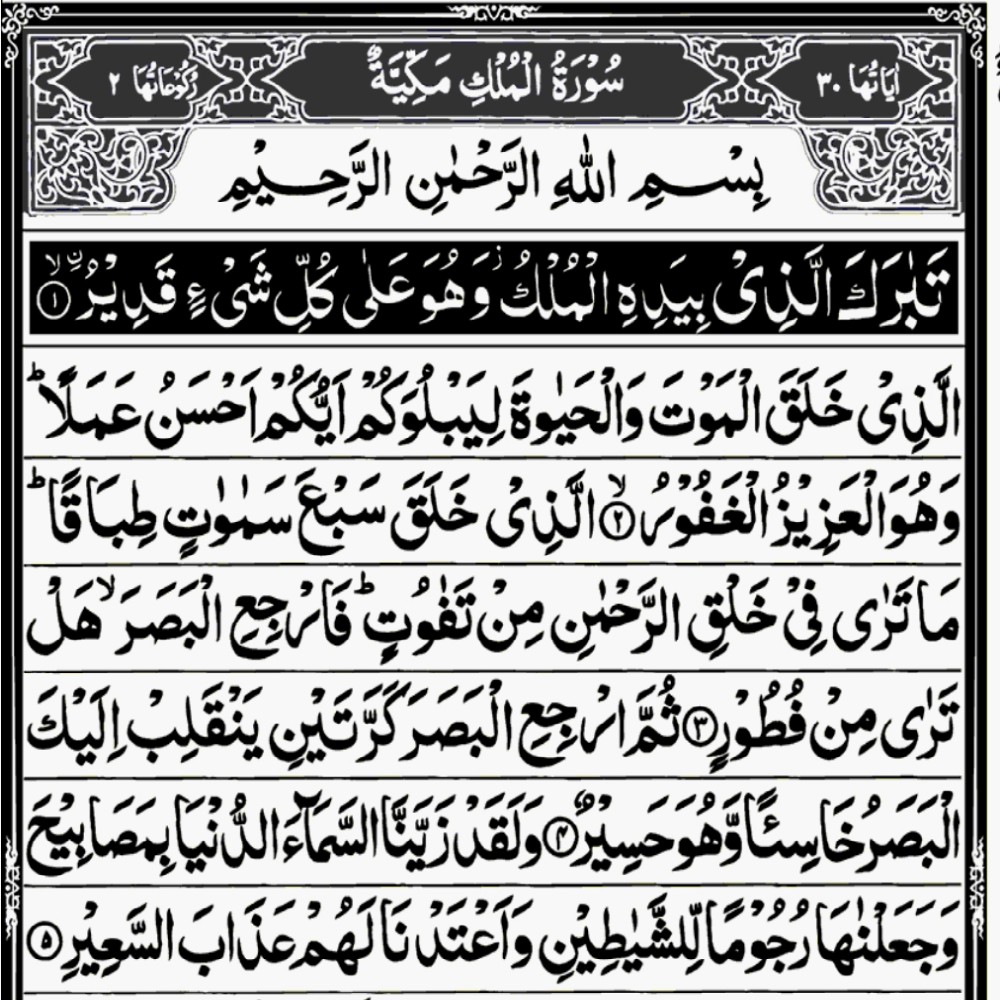 اٰيَاتُهَا ٣٠ سُوْرَةُ الْمُلْكِ مَكِّيَّةٌ رُكُوْعَاتُهَا ٢
بِسْمِ اللّٰهِ الرَّحْمٰنِ الرَّحِيْمِ
تَبٰرَكَ الَّذِىْ بِيَدِهِ الْمُلْكُ ز وَهُوَ عَلٰى كُلِّ شَىْءٍ قَدِيْرُ ۨ ۙ ﴿١﴾
الَّذِىْ خَلَقَ الْمَوْتَ وَالْحَيٰوةَ لِيَبْلُوَكُمْ اَيُّكُمْ اَحْسَنُ عَمَلًا ؕ
وَهُوَ الْعَزِيْزُ الْغَفُوْرُ ۙ ﴿٢﴾ الَّذِىْ خَلَقَ سَبْعَ سَمٰوٰتٍ طِبَاقًا ؕ
مَا تَرٰى فِىْ خَلْقِ الرَّحْمٰنِ مِنْ تَفٰوُتٍ ؕ فَارْجِعِ الْبَصَرَ ۙ هَلْ
تَرٰى مِنْ فُطُوْرٍ ﴿٣﴾ ثُمَّ ارْجِعِ الْبَصَرَ كَرَّتَيْنِ يَنْقَلِبْ اِلَيْكَ
الْبَصَرُ خَاسِئًا وَّهُوَ حَسِيْرٌ ﴿٤﴾ وَلَقَدْ زَيَّنَّا السَّمَآءَ الدُّنْيَا بِمَصَابِيْحَ
وَجَعَلْنٰهَا رُجُوْمًا لِّلشَّيٰطِيْنِ وَاَعْتَدْنَا لَهُمْ عَذَابَ السَّعِيْرِ ﴿٥﴾